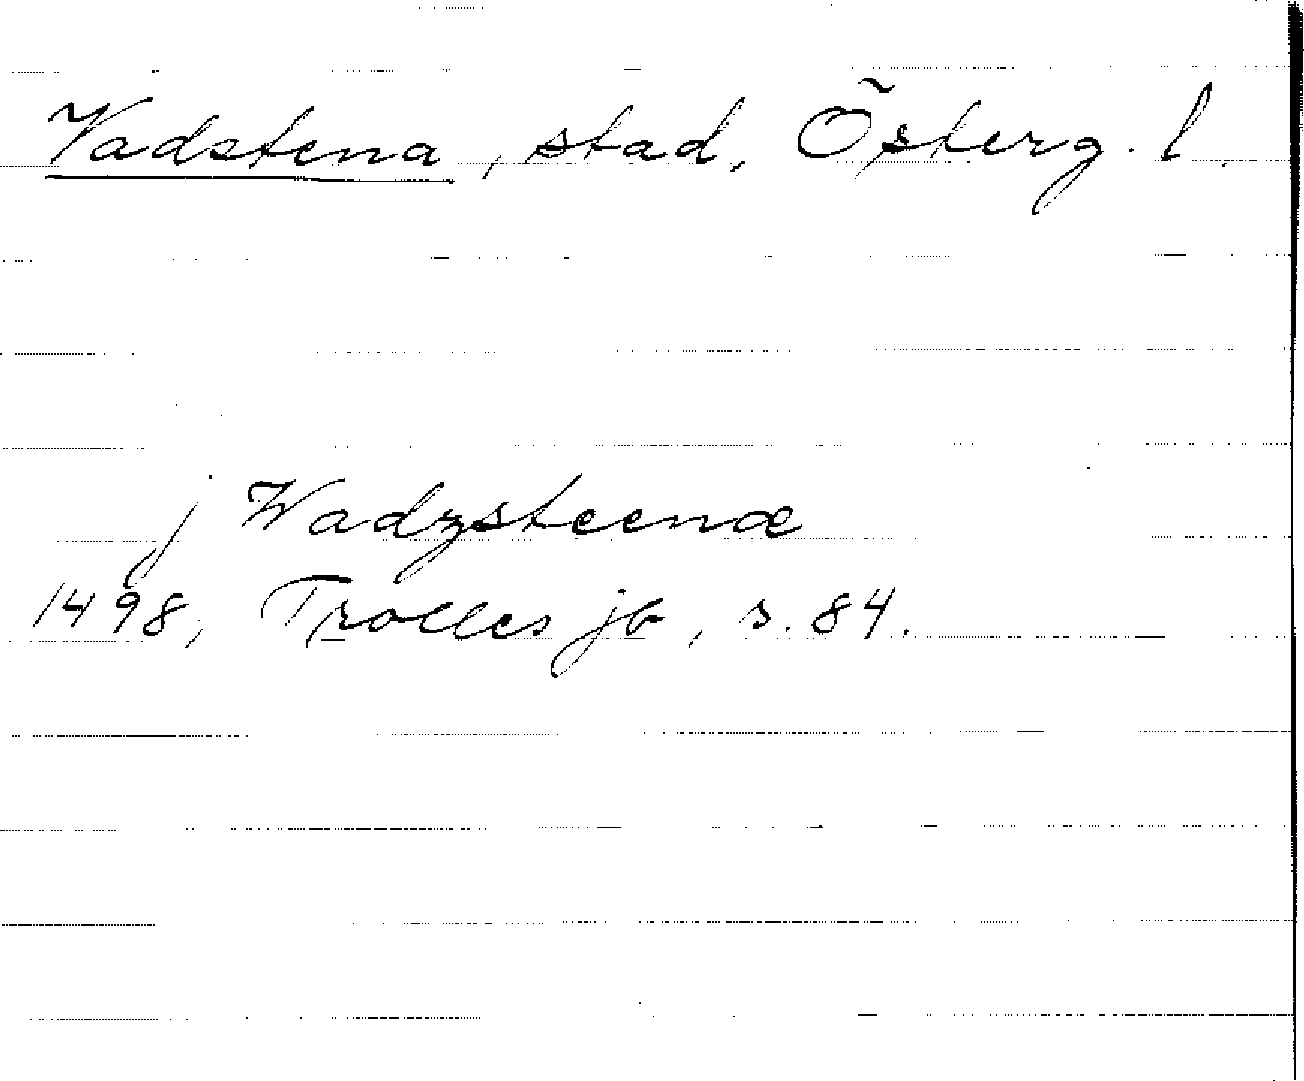 Vadstena, stad, Österg. l.
j Wadzsteenæ
1498, Trolles jb, s. 84.